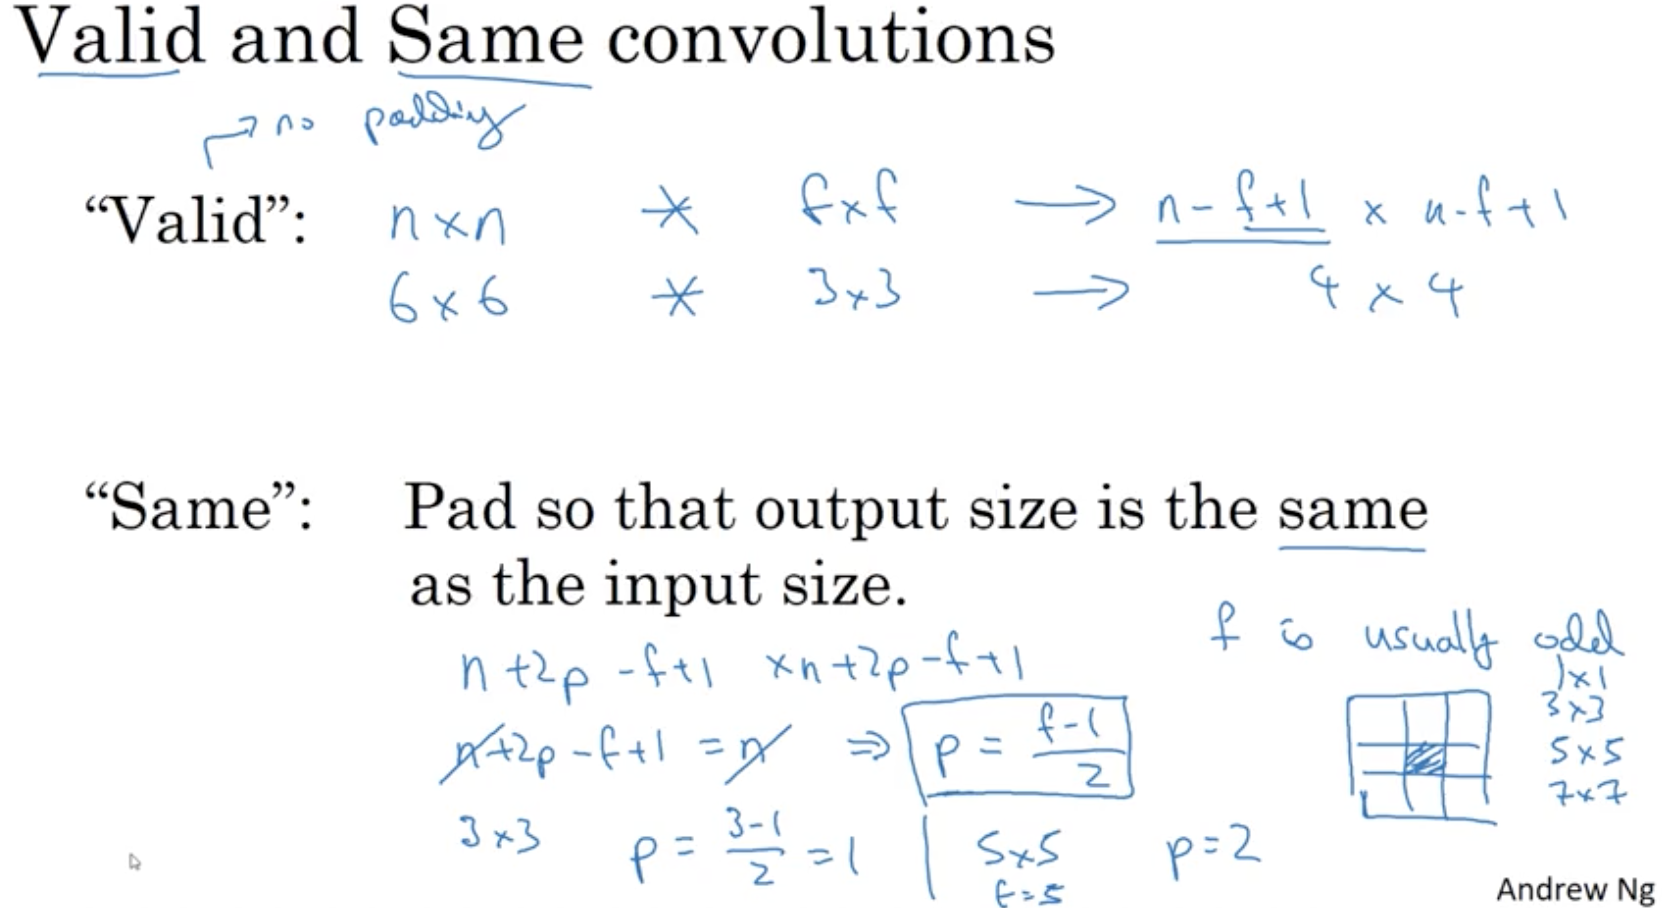 Valid and Same convolutions
→ no padding
“Valid”: n × n * f × f → n - f + 1 × n - f + 1
6 × 6 * 3 × 3 → 4 × 4
“Same”: Pad so that output size is the same
as the input size.
n + 2p - f + 1 × n + 2p - f + 1
n + 2p - f + 1 = n ⇒ p = (f - 1)/2
3 × 3 p = (3 - 1)/2 = 1 | 5 × 5 p = 2
f = 5
f is usually odd
1 × 1
3 × 3
5 × 5
7 × 7
Andrew Ng